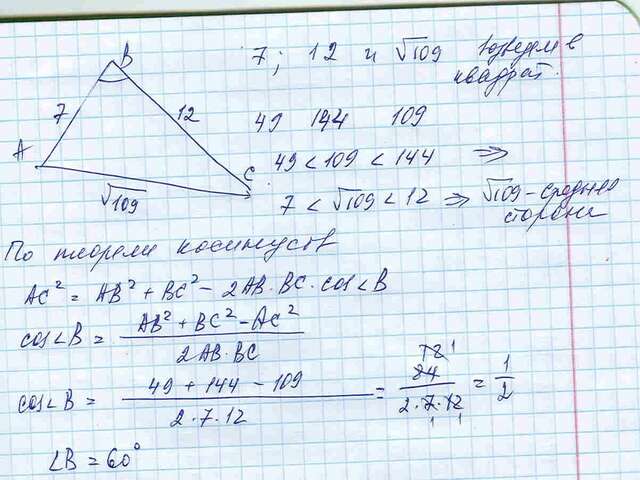 B
7
12
A
C
√109
7; 12 и √109 Возведем в
квадрат.
49 144 109
49 < 109 < 144 ⇒
7 < √109 < 12 ⇒ √109 - средняя
сторона
По теореме косинусов
AC² = AB² + BC² - 2AB·BC·cos∠B
cos∠B = (AB² + BC² - AC²) / (2AB·BC)
cos∠B = (49 + 144 - 109) / (2·7·12) = 84 / (2·7·12) = 1/2
∠B = 60°